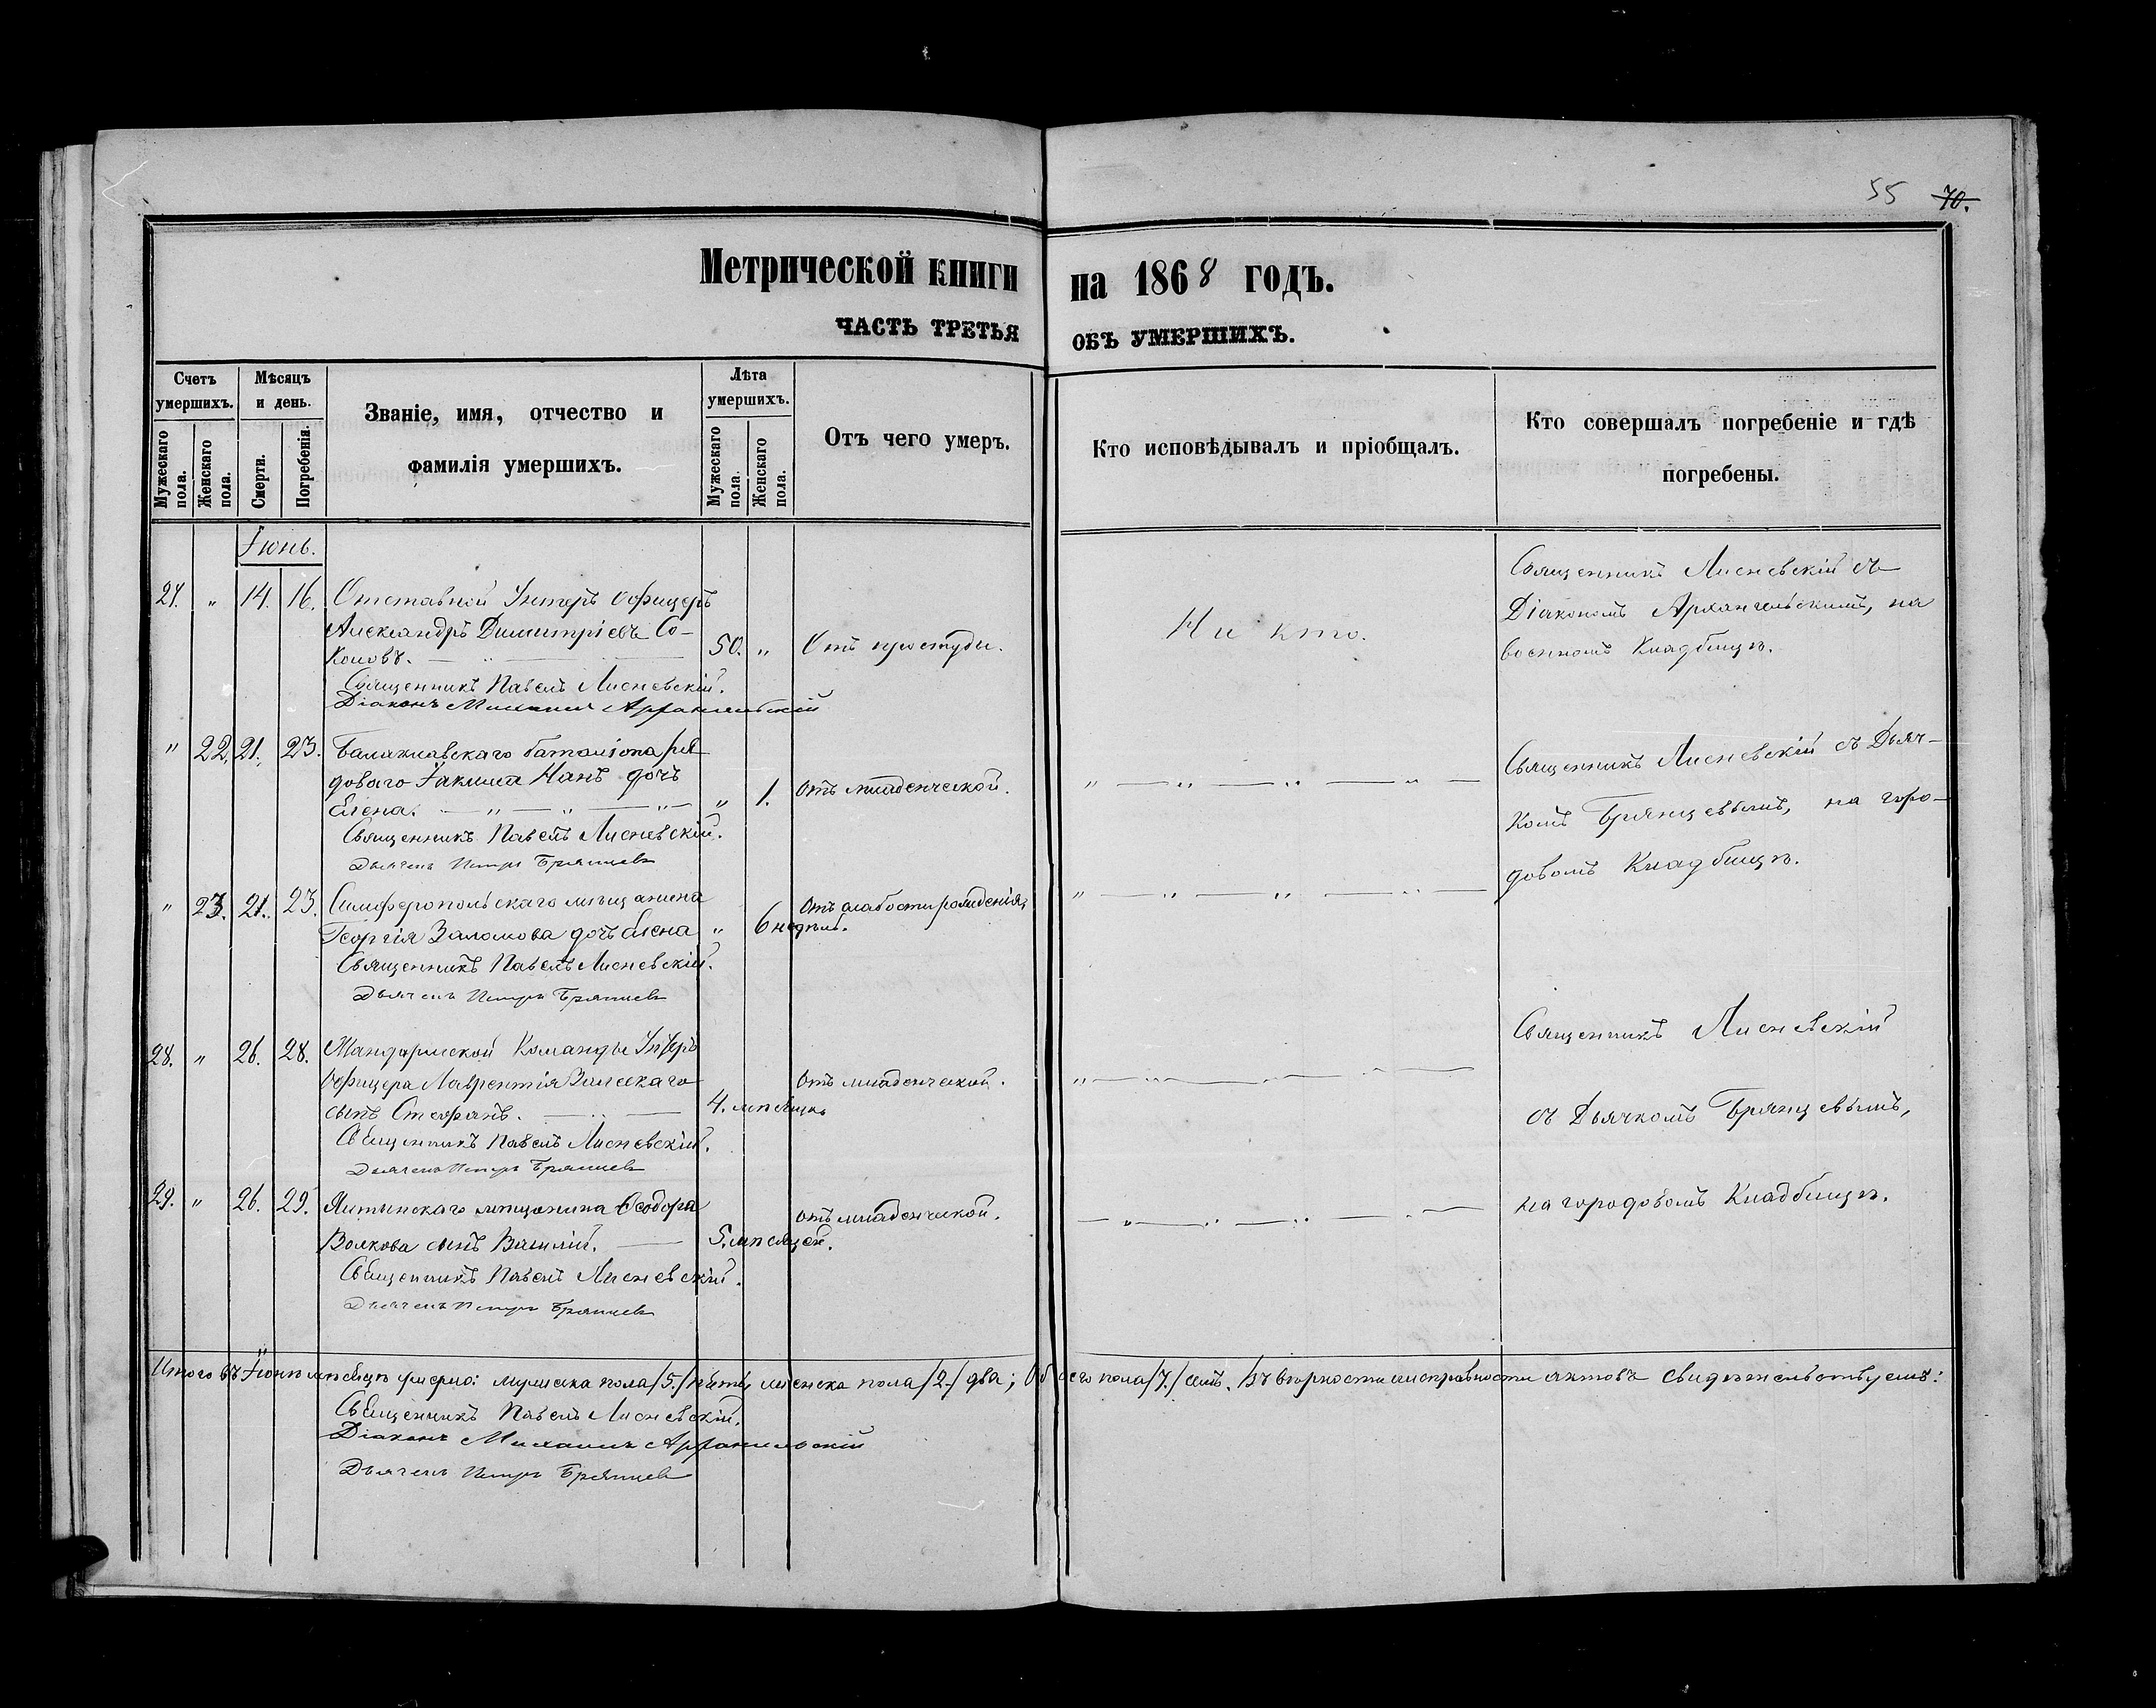 55 70.
Метрической книги на 1868 годъ.
ЧАСТЬ ТРЕТЬЯ ОБЪ УМЕРШИХЪ.
Счетъ умершихъ.
Мужескаго пола.
Женскаго пола.
Мѣсяцъ и день.
Смерти.
Погребенія.
Званіе, имя, отчество и
фамилія умершихъ.
Лѣта умершихъ.
Мужескаго пола.
Женскаго пола.
Отъ чего умеръ.
Кто исповѣдывалъ и пріобщалъ.
Кто совершалъ погребеніе и гдѣ
погребены.
Іюнь.
27. " 14. 16. Отставной Унтеръ офицеръ
Александръ Димитріевъ Со-
коловъ. 50. " Отъ простуды. Ни кто.
Священникъ Лисневскій съ
Діакономъ Архангельскимъ, на
военномъ Кладбищѣ.
Священникъ Павелъ Лисневскій.
Діаконъ Михаилъ Архангельскій
" 22. 21. 23. Балаклавскаго баталіона ря
доваго Іакима Нанъ дочь
Елена. " 1. Отъ младенческой.
Священникъ Лисневскій съ Дьяч-
комъ Брянцевымъ, на горо-
довомъ Кладбищѣ.
Священникъ Павелъ Лисневскій.
Дьячекъ Петръ Брянцевъ
" 23. 21. 23. Симферопольскаго мѣщанина
Георгія Заломова дочь Елена " 6 недѣль. Отъ слабости рожденія,
Священникъ Павелъ Лисневскій.
Дьячекъ Петръ Брянцевъ
28. " 26. 28. Жандармской Команды Унтеръ
офицера Лаврентія
сынъ Стефанъ. 4. мѣсяцъ Отъ младенческой.
Священникъ Лисневскій
съ Дьячкомъ Брянцевымъ,
на городовомъ Кладбищѣ.
Священникъ Павелъ Лисневскій.
Дьячекъ Петръ Брянцевъ
29. " 26. 29. Ялтинскаго мѣщанина Ѳеодора
Волкова сынъ Василій. 5. мѣсяцей. Отъ младенческой.
Священникъ Павелъ Лисневскій.
Дьячекъ Петръ Брянцевъ
Итого въ Іюнѣ мѣсяцѣ умерло: мужеска пола /5./ пять, женска пола /2./ два; Обоего пола /7./ семь. Въ вѣрности и исправности актовъ свидѣтельствуемъ:
Священникъ Павелъ Лисневскій.
Діаконъ Михаилъ Архангельскій
Дьячекъ Петръ Брянцевъ